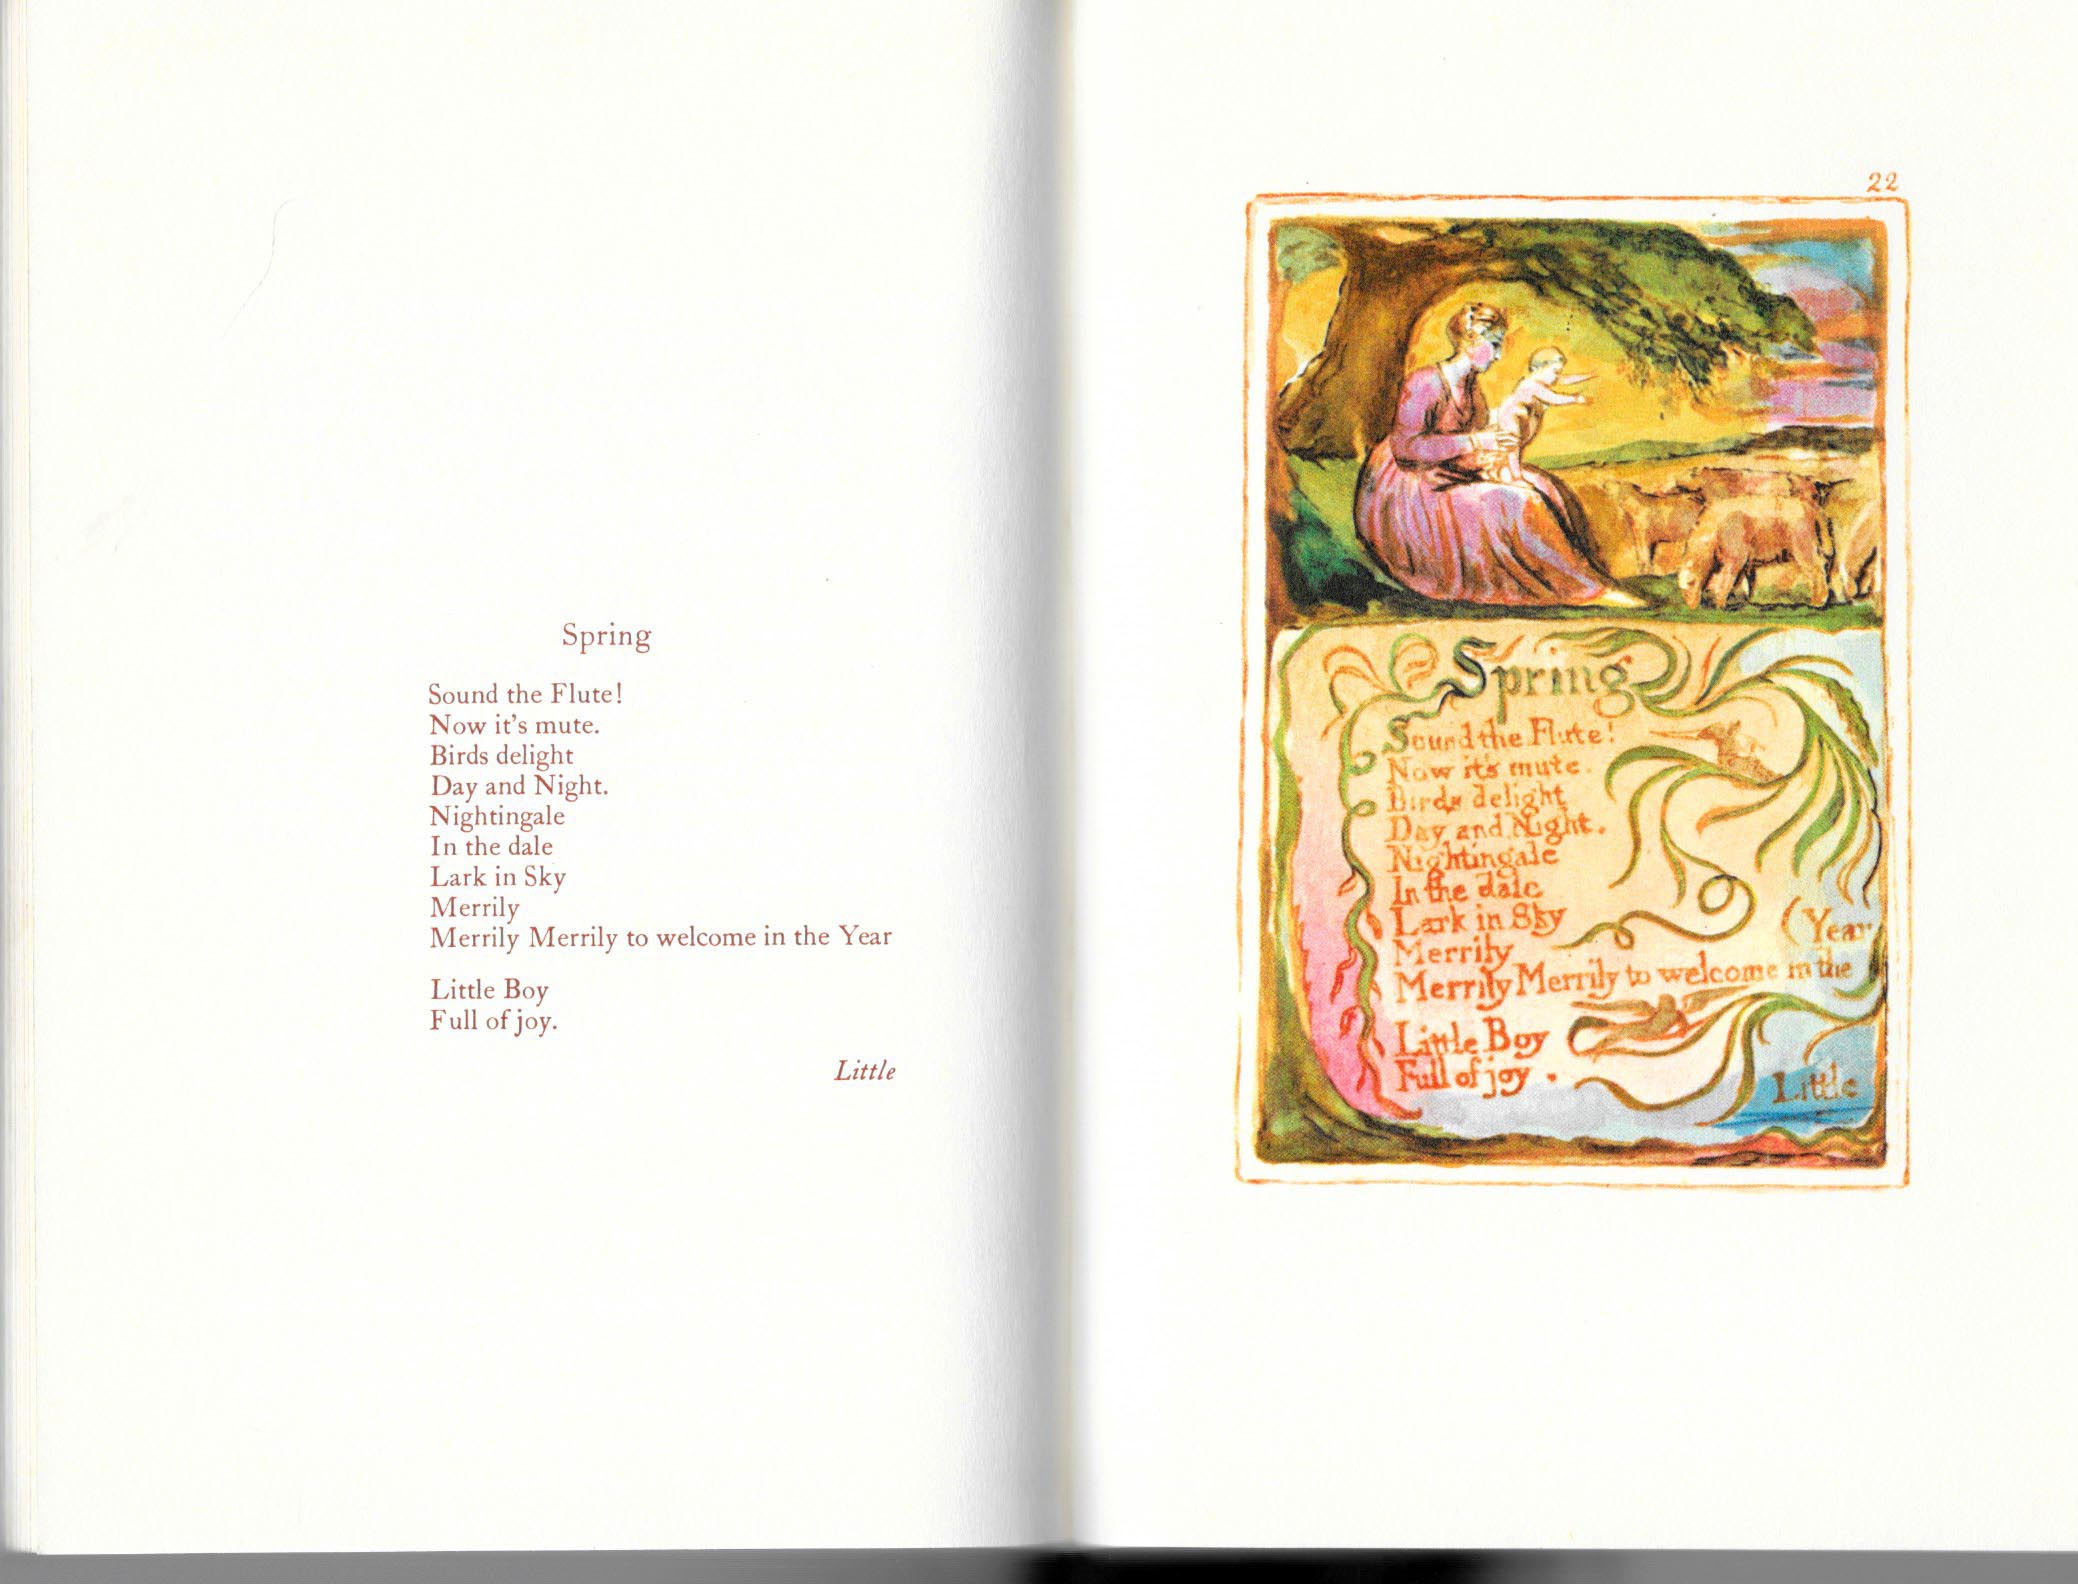 Spring
Sound the Flute!
Now it's mute.
Birds delight
Day and Night.
Nightingale
In the dale
Lark in Sky
Merrily
Merrily Merrily to welcome in the Year
Little Boy
Full of joy.
Little
22
Spring
Sound the Flute!
Now it's mute.
Birds delight
Day and Night.
Nightingale
In the dale
Lark in Sky
Merrily
(Year
Merrily Merrily to welcome in the
Little Boy
Full of joy.
Little